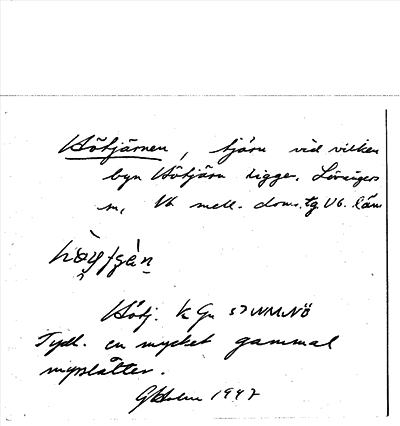 Hötjärnen, tjärn vid vilken
byn Hötjärn ligger. Lövångers
sn, Vb mell. doms. tg Vb. län
Hötj. k Gn
Tydl. en mycket gammal
myrslåtter.
GHolm 1947